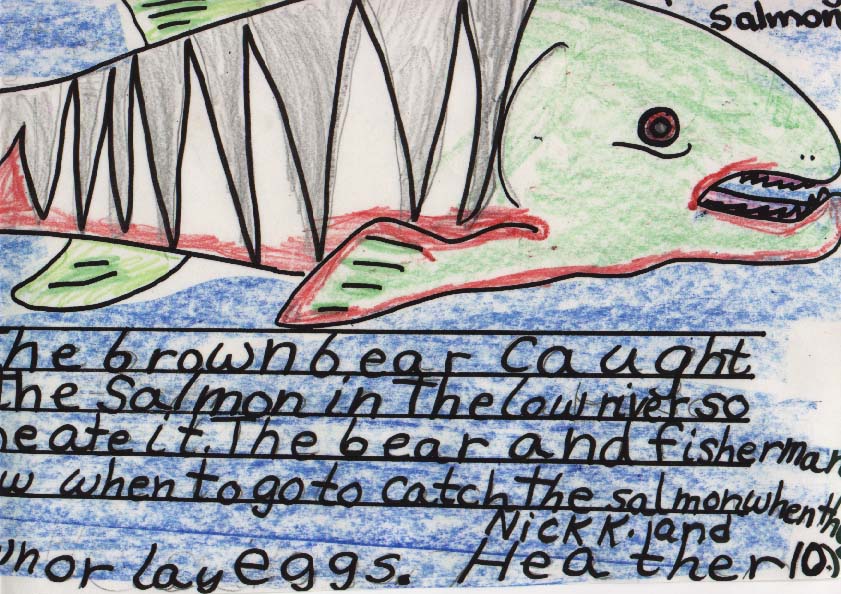 Salmon
he brown bear caught
the Salmon in The low river so
he ate it. The bear and fisherman
w when to go to catch the salmon when the
Nick K. and
wn or lay eggs. Heather (0.)